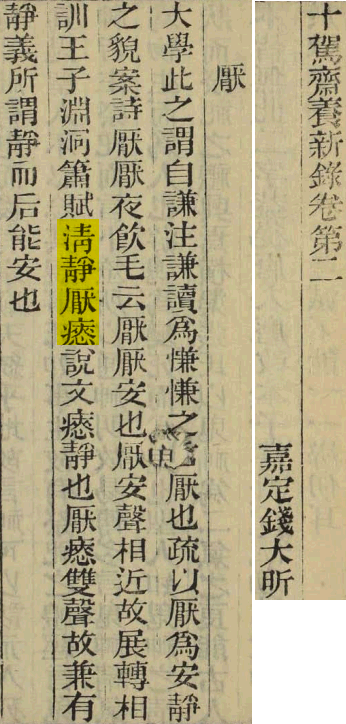 十駕齋養新錄卷第二
嘉定錢大昕
厭
大學此之謂自謙注謙讀爲慊慊之言厭也疏以厭爲安靜
之貌案詩厭厭夜飮毛云厭厭安也厭安聲相近故展轉相
訓王子淵洞簫賦清靜厭瘱說文瘱靜也厭瘱雙聲故兼有
靜義所謂靜而后能安也